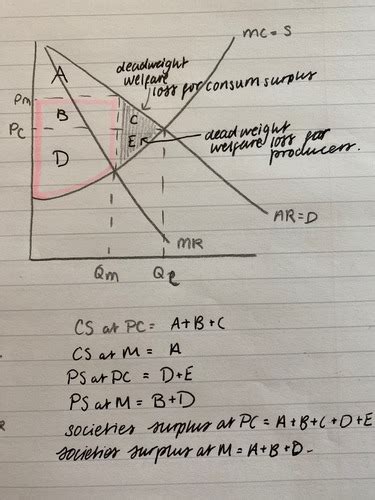 MC = S
A
deadweight
welfare
loss for consum surplus
Pm
B
C
PC
E
deadweight
welfare loss for
producers.
D
AR = D
MR
Qm
Qe
CS at PC = A+B+C
CS at M = A
PS at PC = D+E
PS at M = B+D
societies surplus at PC = A+B+C+D+E
societies surplus at M = A+B+D.